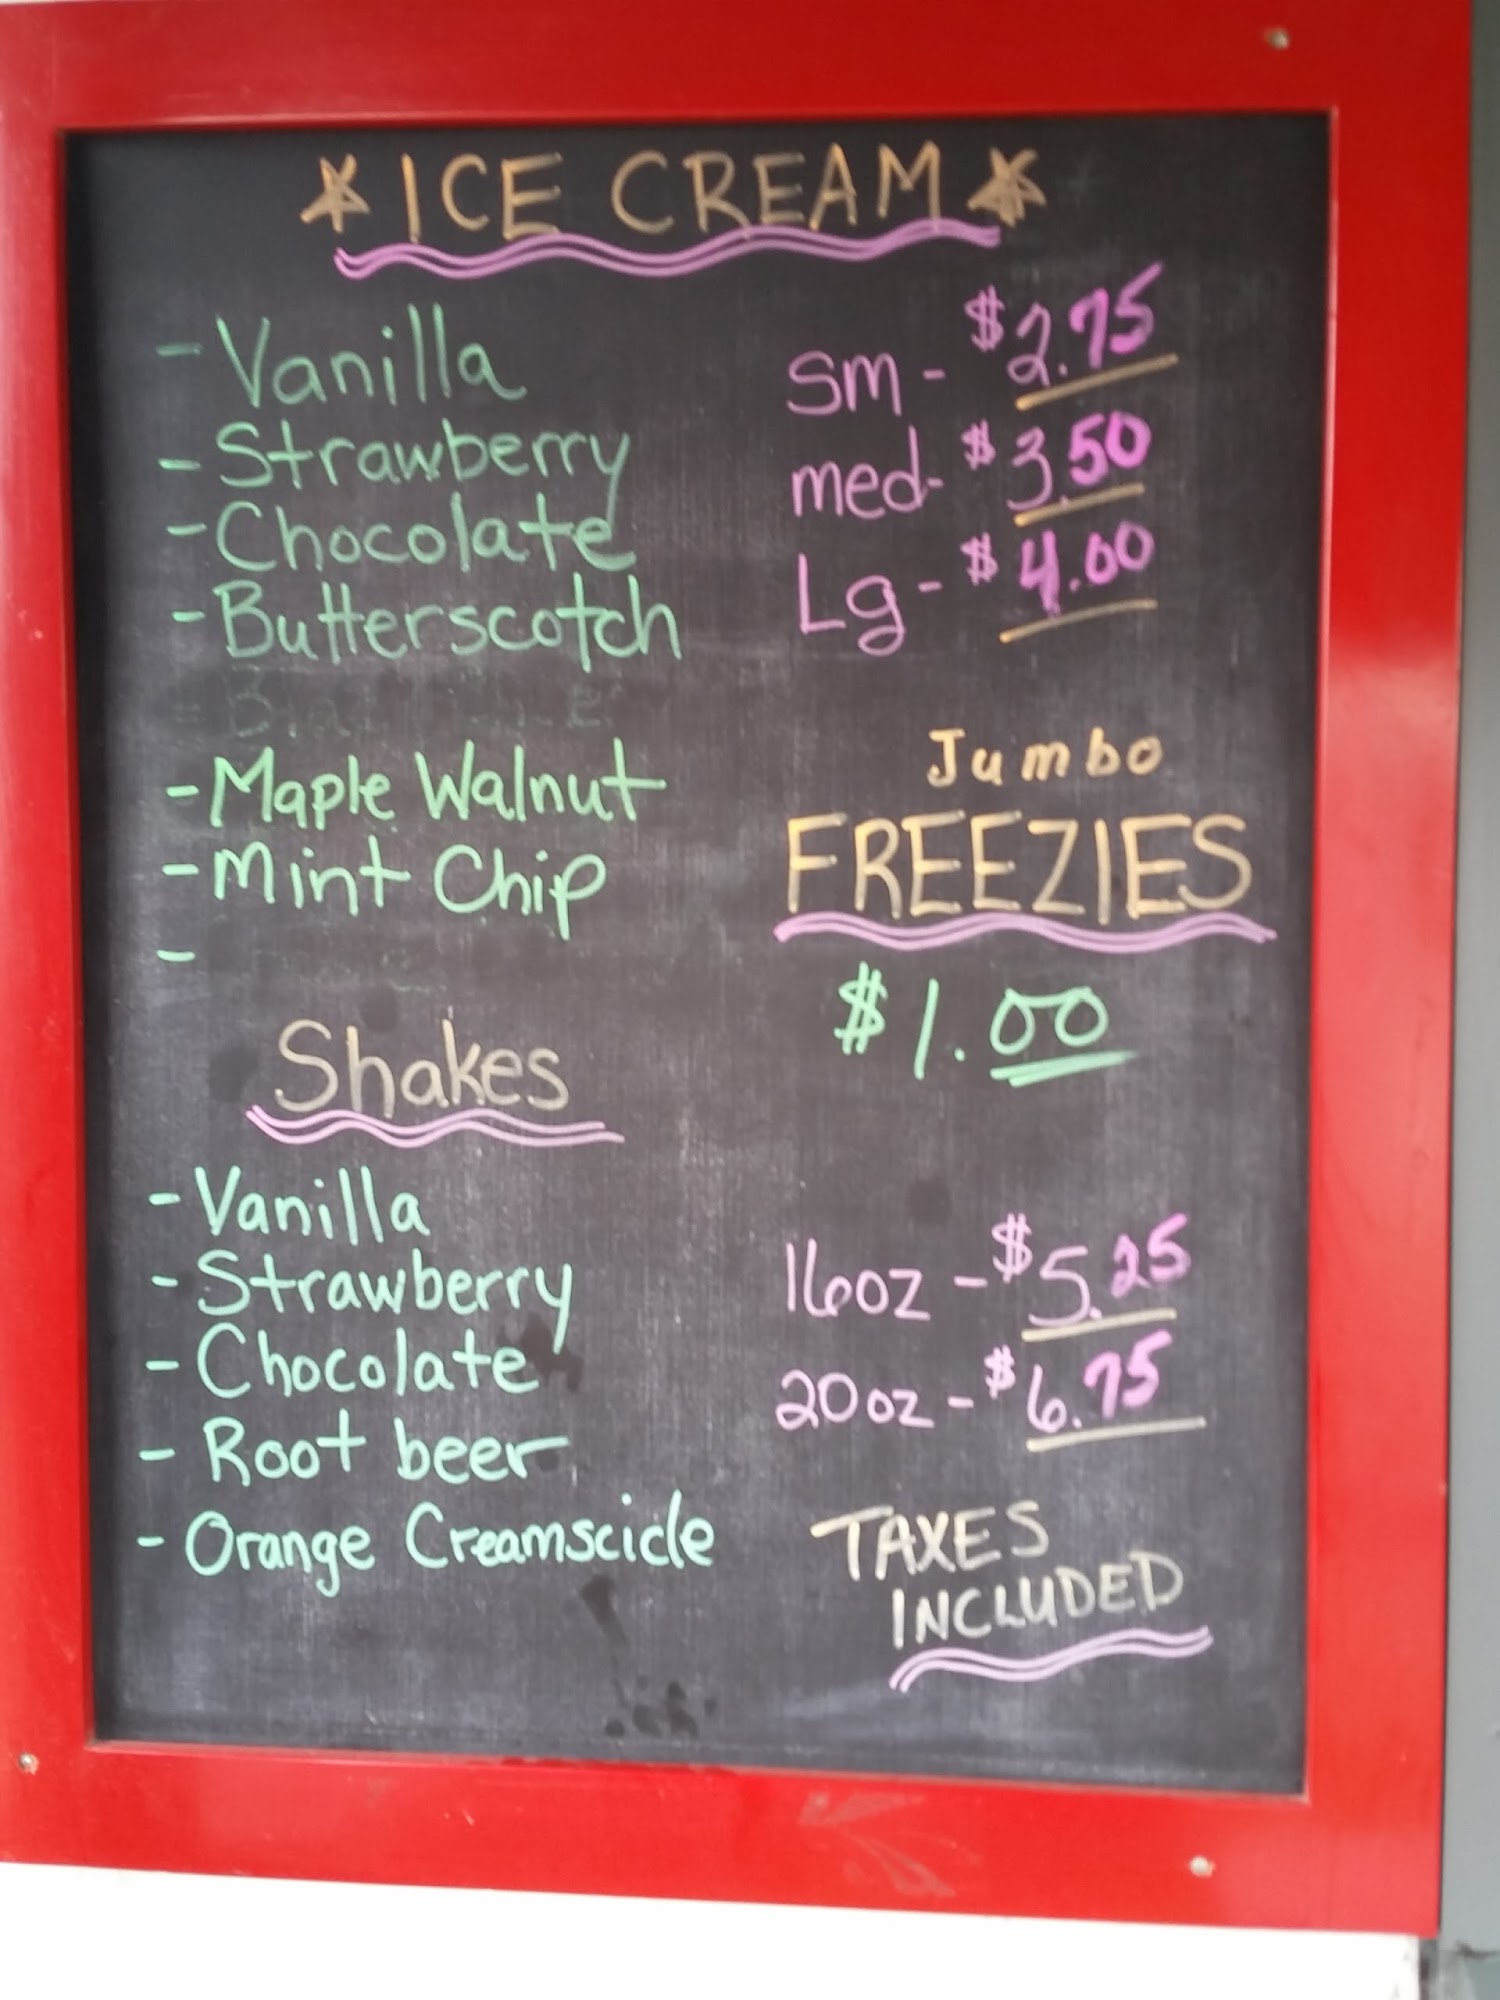 ICE CREAM
- Vanilla
- Strawberry
- Chocolate
- Butterscotch
- Maple Walnut
- Mint Chip
-
sm - $2.75
med - $3.50
Lg - $4.00
Jumbo
FREEZIES
$1.00
Shakes
- Vanilla
- Strawberry
- Chocolate
- Root beer
- Orange Creamscicle
16oz - $5.25
20oz - $6.75
TAXES
INCLUDED